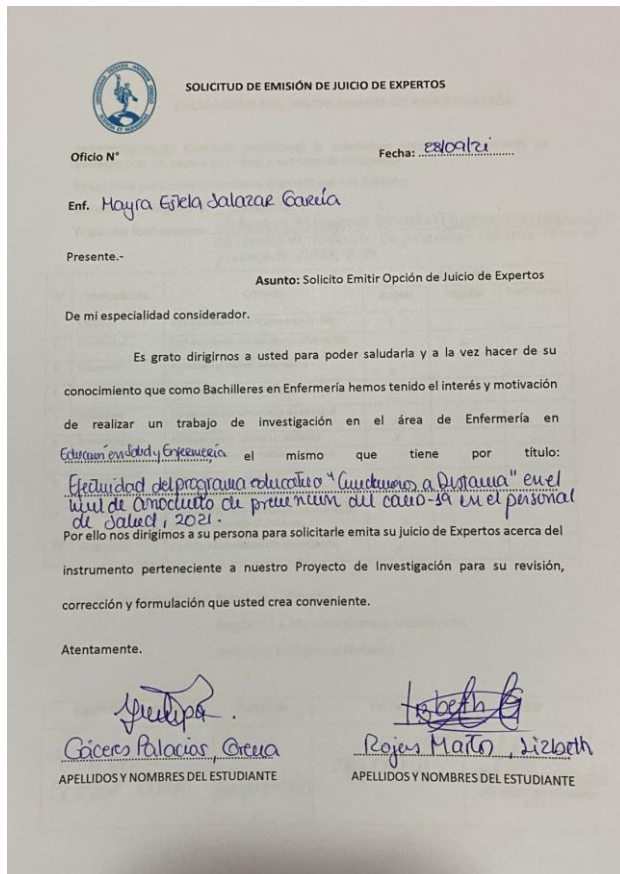 SOLICITUD DE EMISIÓN DE JUICIO DE EXPERTOS
Oficio N°
Fecha: 28/09/21
Enf. Mayra Estela Salazar García
Presente.-
Asunto: Solicito Emitir Opción de Juicio de Expertos
De mi especialidad considerador.
Es grato dirigirnos a usted para poder saludarla y a la vez hacer de su
conocimiento que como Bachilleres en Enfermería hemos tenido el interés y motivación
de realizar un trabajo de investigación en el área de Enfermería en
Educación en Salud y Enfermería el mismo que tiene por título:
Efectividad del programa educativo "Cuidarnos a Distancia" en el
nivel de de prevencion del covid-19 en el personal
de Salud, 2021.
Por ello nos dirigimos a su persona para solicitarle emita su juicio de Expertos acerca del
instrumento perteneciente a nuestro Proyecto de Investigación para su revisión,
corrección y formulación que usted crea conveniente.
Atentamente.
Lizbeth
Cáceres Palacios,
Rojas, Lizbeth
APELLIDOS Y NOMBRES DEL ESTUDIANTE
APELLIDOS Y NOMBRES DEL ESTUDIANTE